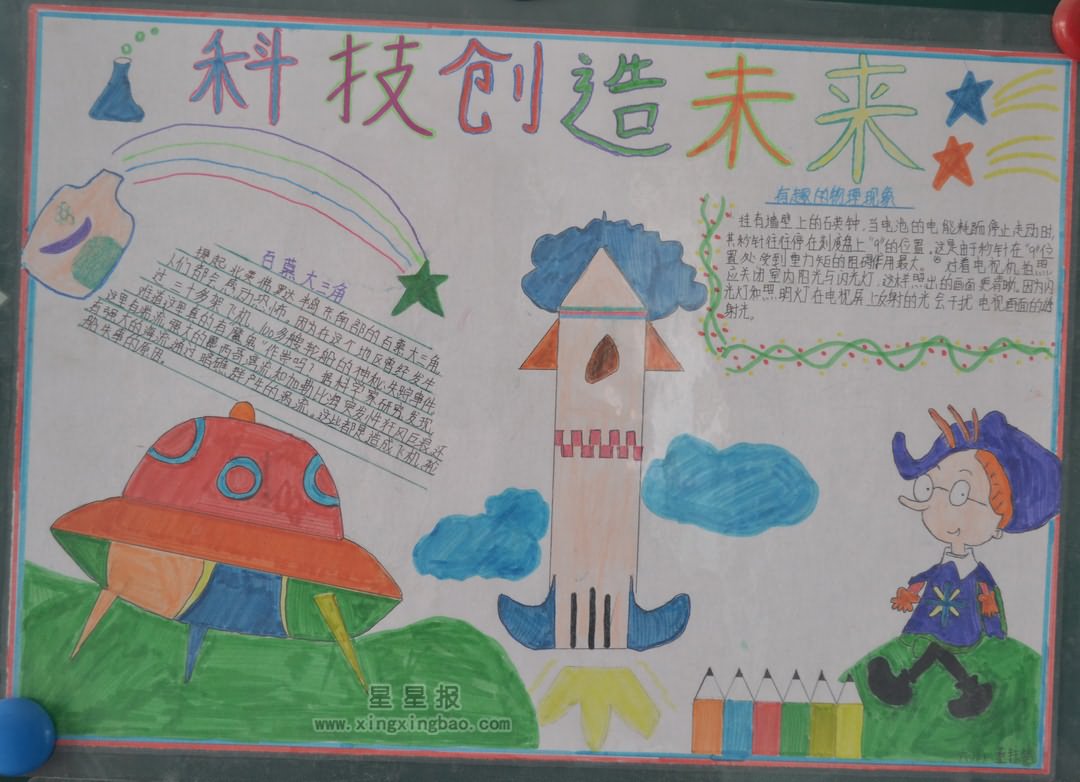 科技创造未来
有趣的物理现象
挂有墙壁上的石英钟,当电池的电能耗融停止走动时,
其秒针往往停在刻度盘上"9"的位置。这是由于秒针在"9"位
置处受到重力矩的阻碍作用最大。 对着电视机拍照
应关闭室内阳光与闪光灯,这样照出的画面更清晰。因为闪
光灯和照明灯在电视屏上反射的光会干扰电视画面的透
射光。
百慕大三角
提起北美佛罗 半角部的百慕大三角,
人们都会感动恐怖。因为在这个地区曾经发生
过三十多架飞机,100多艘轮船的神秘失踪事件
难道这里真的有魔鬼"作祟吗?据科学家研究发现,
这里有 强大的墨西哥湾流和加勒比海突发性狂风巨浪还
有强大的海流通过暗礁群产生的涡流。这些都是造成飞机、轮
船失事的原因。
星星报
www.xingxingbao.com